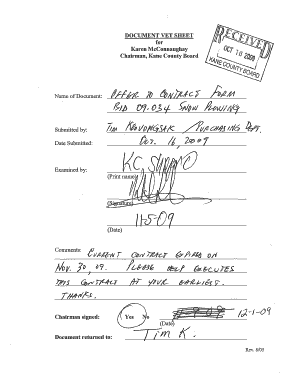 DOCUMENT VET SHEET
for
Karen McConnaughay
Chairman, Kane County Board
RECEIVED
OCT 16 2009
KANE COUNTY BOARD
Name of Document: OFFER TO CONTRACT FORM
BID 09-034 SNOW PLOWING
Submitted by: TIM PURCHASING DEPT.
Date Submitted: OCT. 16, 2009
Examined by: K.C.
(Print name)
(Signature)
11-5-09
(Date)
Comments: CURRENT CONTRACT EXPIRES ON
NOV. 30, 09. PLEASE HELP EXECUTES
THIS CONTRACT AT YOUR EARLIEST.
THANKS.
Chairman signed: Yes No 12-1-09
(Date)
Document returned to: TIM K.
Rev. 6/05